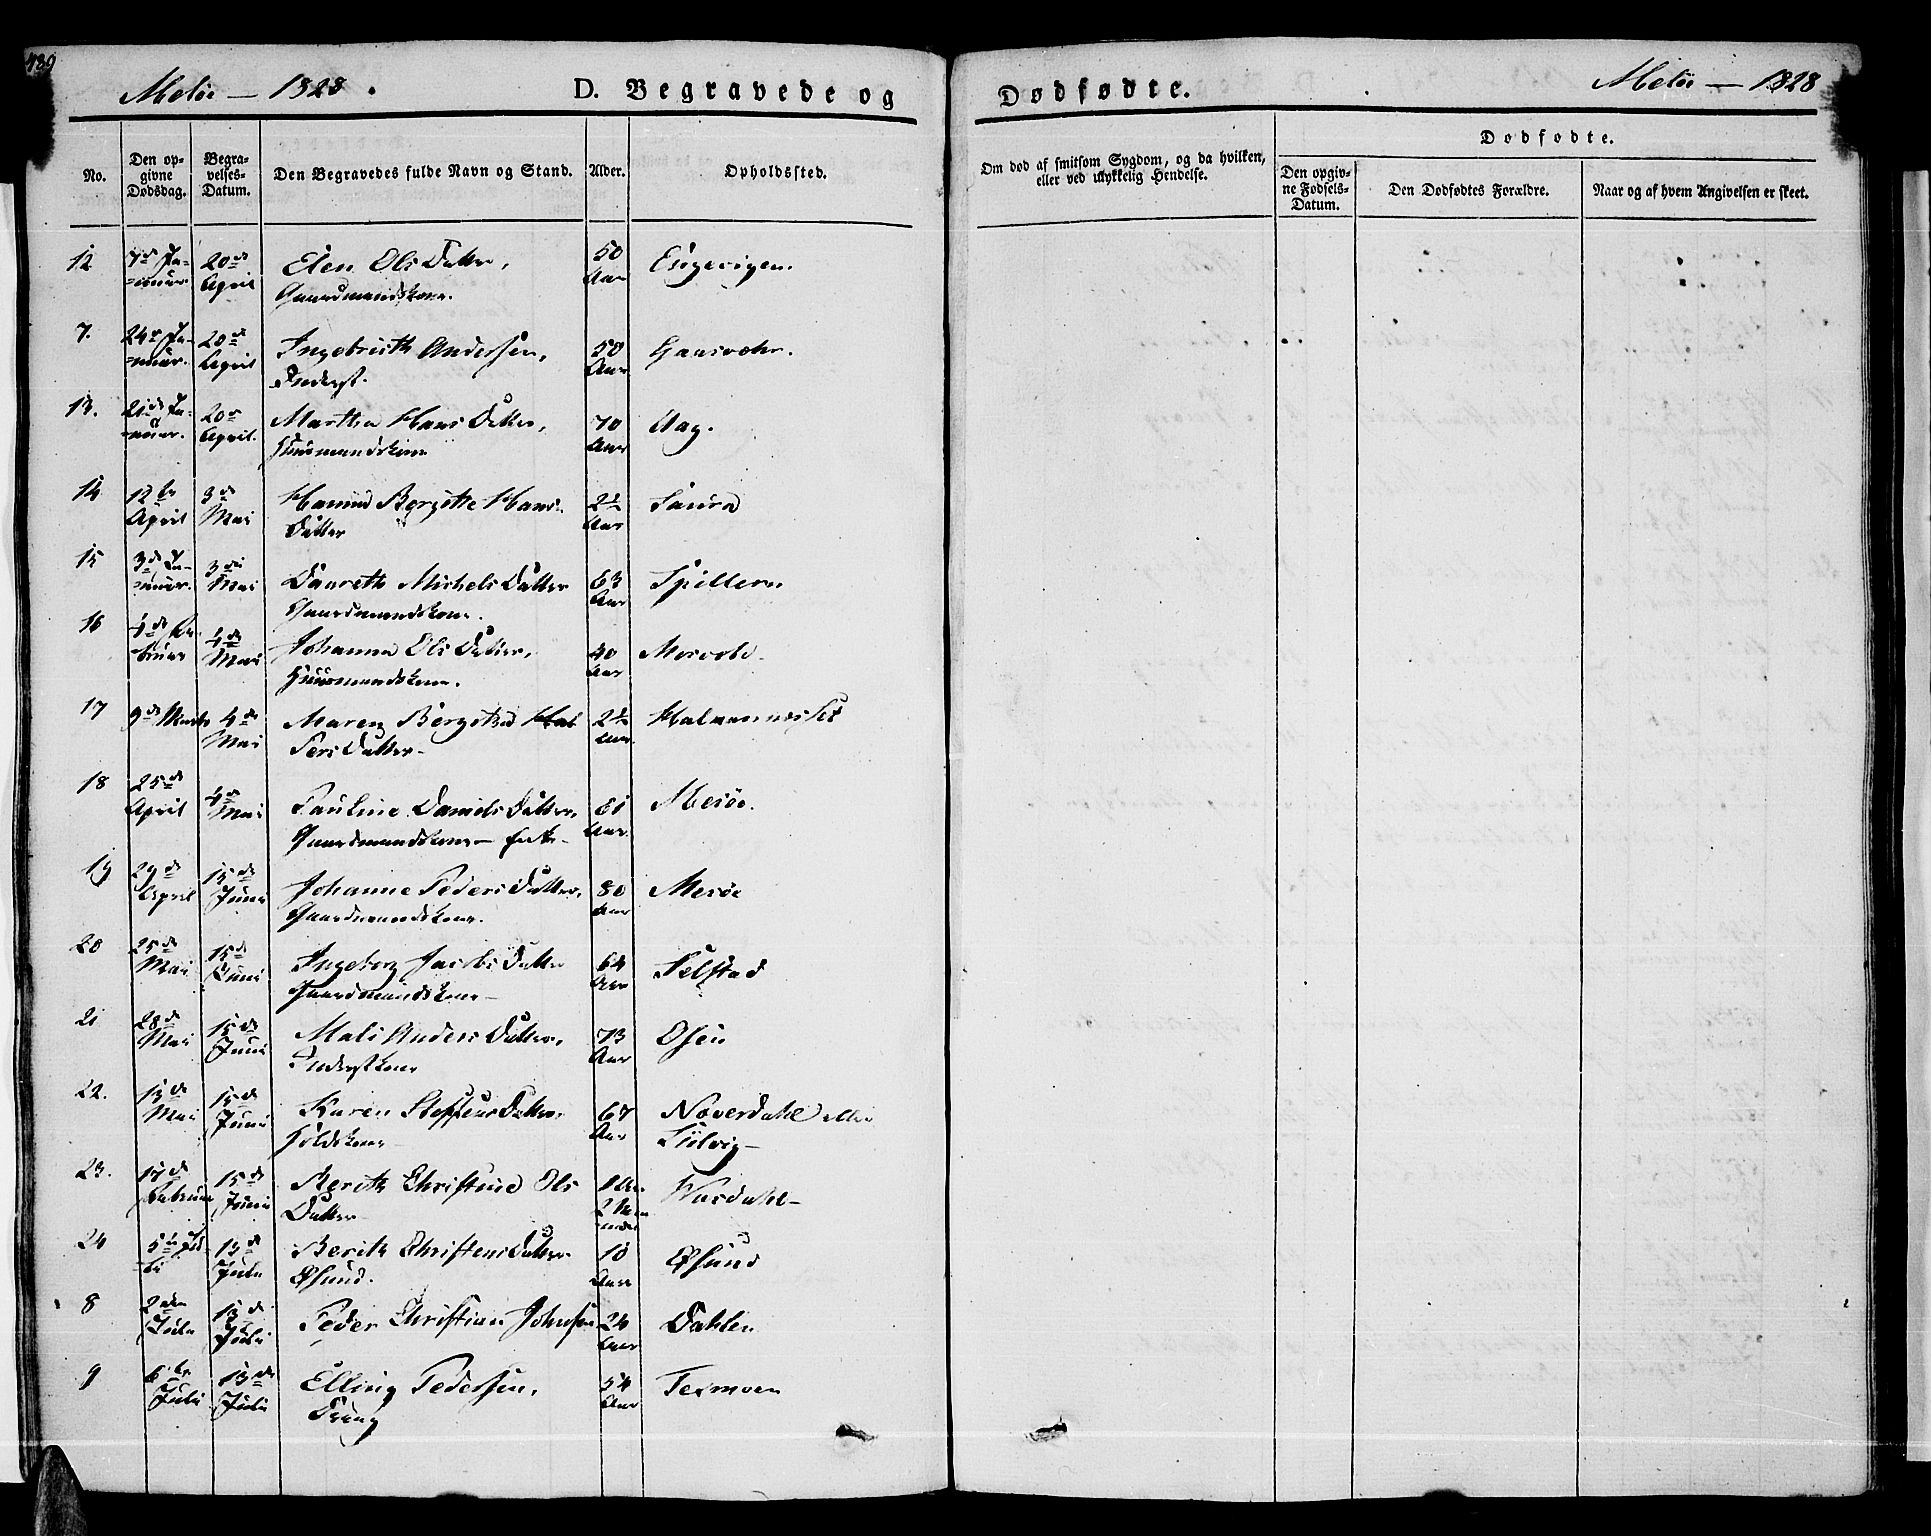 489
Meløe — 1828. D. Begravede og
Dødfødte. Meløe — 1828
No. Den op-
givne
Dødsdag. Begra-
velses-
Datum. Den Begravedes fulde Navn og Stand. Alder. Opholdssted.
Om død af smitsom Sygdom, og da hvilken,
eller ved ulykkelig Hendelse.
Dødfødte.
Den opgiv-
ne Fødsels-
Datum. Den Dødfødtes Forældre. Naar og af hvem Angivelsen er skeet.
12 7de Ja- 20de Elen Ols Datter, 50 Engevigen.
=nuar. April Gaardmandskone. Aar
7. 24de Ja- 20de Ingebricth Andersen, 50
=nuar. April Inderst. Aar
13. 21de Ja- 20de Martha Hans Datter, 70 Aag.
=nuar. April. Huusmandskone Aar
14 12te 3de Hanna Bergitte Hans 2½ Saura
April Mai Datter Aar
15 3de Ja- 3de Daareth Michels Datter 63 Spilleren
=nuar. Mai Gaardmandskone. Aar
16 4de Fe- 4de Johanna Ols Datter, 40
bruar Mai Huusmandskone. Aar
17 9de Marts 4de Maren 2½
Mai Pers Datter Aar
18 25de 4de Pauline Daniels Datter, 81 Mesøe.
April Mai Gaardmandskone Aar
19 29de 15de Johanne Peders Datter, 80 Mesøe
April Juni Gaardmandskone. Aar
20 25de 15de Ingeborg Jacobs Datter 64 Selstad
Mai Juni Gaardmandskone Aar
21 28de 15de Mali Anders Datter, 73 Osen
Mai Juni Inderstkone Aar
22. 13de 15de Karen Steffens Datter, 67 Noverdahl eller
Mai Juni Aar
23. 17de 15de Berith Christina Ols 1 Aar
Februar Juni Datter 2 Maa
neder
24 5te Ju- 13de Berith Christens Datter 10 Øsund
li Juli Øsund. Aar
8 2den 13de Peder Christian Johnsen 24 Dahlen
Juli Juli Aar
9 6te 13de Elling Pedersen, 54 Texmoen
Juli Juli Aar